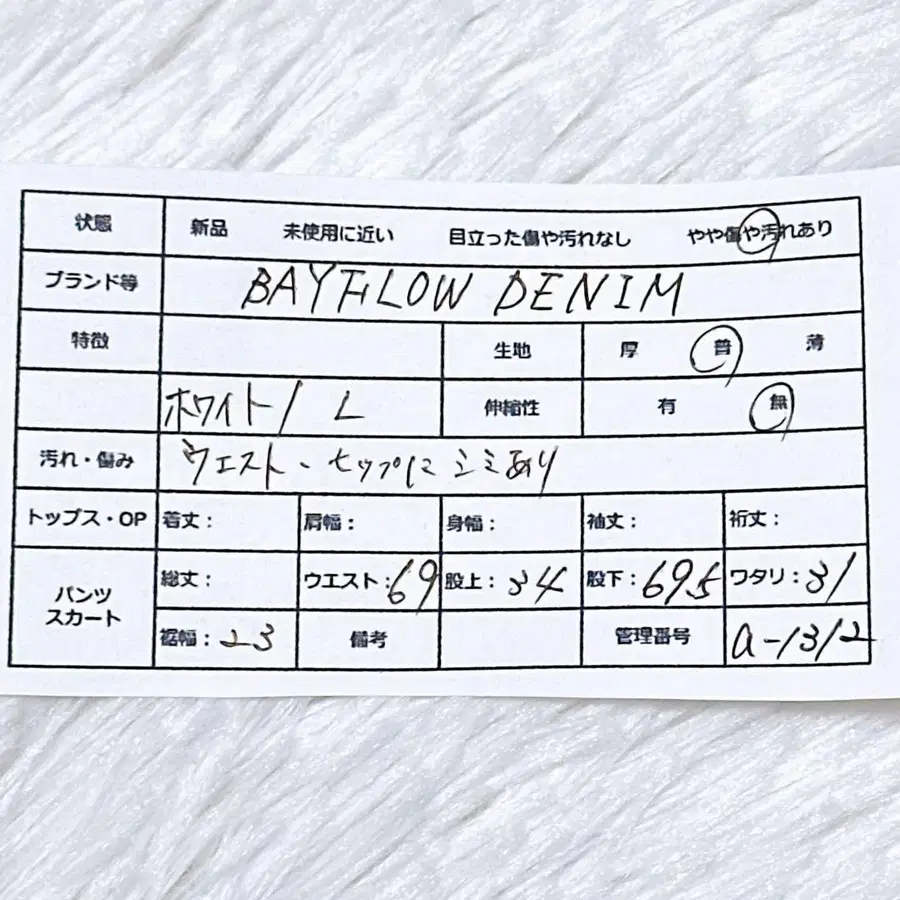 状態 新品 未使用に近い 目立った傷や汚れなし やや傷や汚れあり
ブランド等 BAYFLOW DENIM
特徴 生地 厚 普 薄
ホワイト/ L 伸縮性 有 無
汚れ・傷み ウエスト・ヒップにシミあり
トップス・OP 着丈： 肩幅： 身幅： 袖丈： 裄丈：
パンツ スカート 総丈： ウエスト：69 股上：34 股下：69.5 ワタリ：31
裾幅：23 備考 管理番号 a-1312